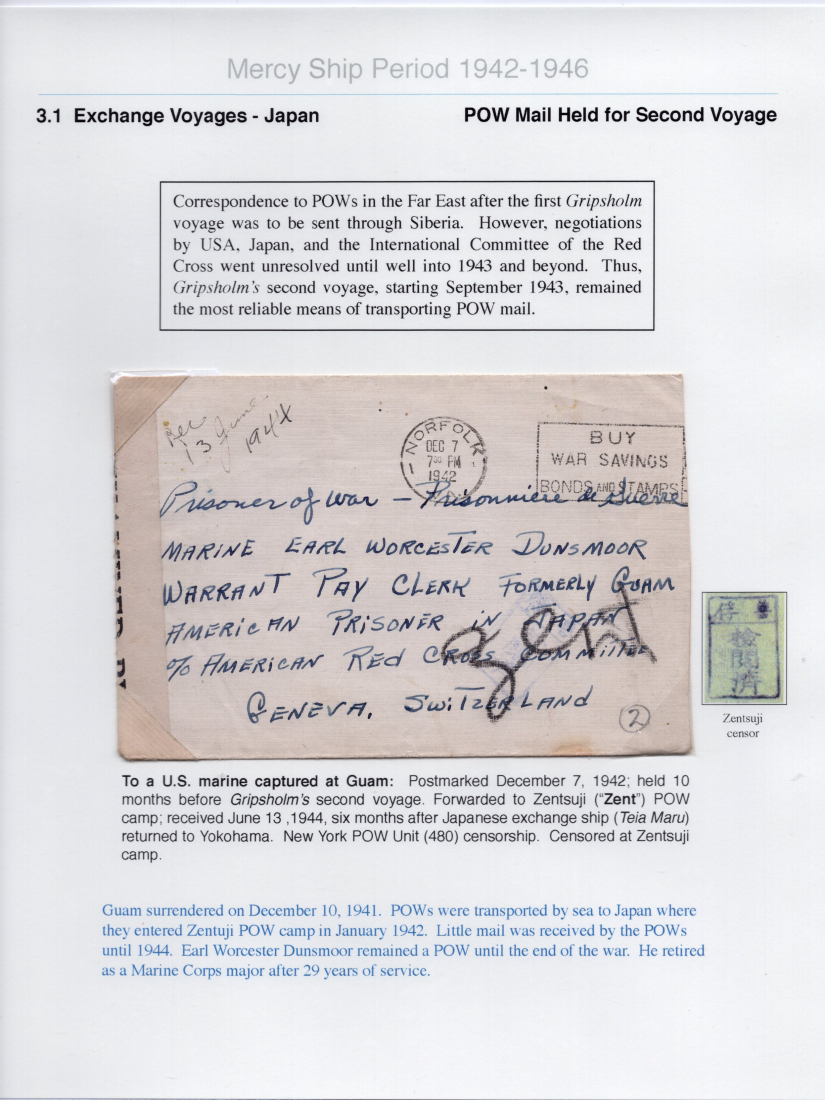 Mercy Ship Period 1942-1946
3.1 Exchange Voyages - Japan
POW Mail Held for Second Voyage
Correspondence to POWs in the Far East after the first Gripsholm
voyage was to be sent through Siberia. However, negotiations
by USA, Japan, and the International Committee of the Red
Cross went unresolved until well into 1943 and beyond. Thus,
Gripsholm's second voyage, starting September 1943, remained
the most reliable means of transporting POW mail.
Rec
13 June
1944
NORFOLK
DEC 7
7 30 PM
1942
BUY
WAR SAVINGS
BONDS AND STAMPS
Prisoner of War - Prisonniere de Guerre
MARINE EARL WORCESTER DUNSMOOR
WARRANT PAY CLERK FORMERLY GUAM
AMERICAN PRISONER IN JAPAN
% AMERICAN RED CROSS COMMITTEE
GENEVA, SWITZERLAND
Zent
2
俘
檢
閱
濟
Zentsuji
censor
To a U.S. marine captured at Guam: Postmarked December 7, 1942; held 10
months before Gripsholm's second voyage. Forwarded to Zentsuji ("Zent") POW
camp; received June 13 ,1944, six months after Japanese exchange ship (Teia Maru)
returned to Yokohama. New York POW Unit (480) censorship. Censored at Zentsuji
camp.
Guam surrendered on December 10, 1941. POWs were transported by sea to Japan where
they entered Zentuji POW camp in January 1942. Little mail was received by the POWs
until 1944. Earl Worcester Dunsmoor remained a POW until the end of the war. He retired
as a Marine Corps major after 29 years of service.